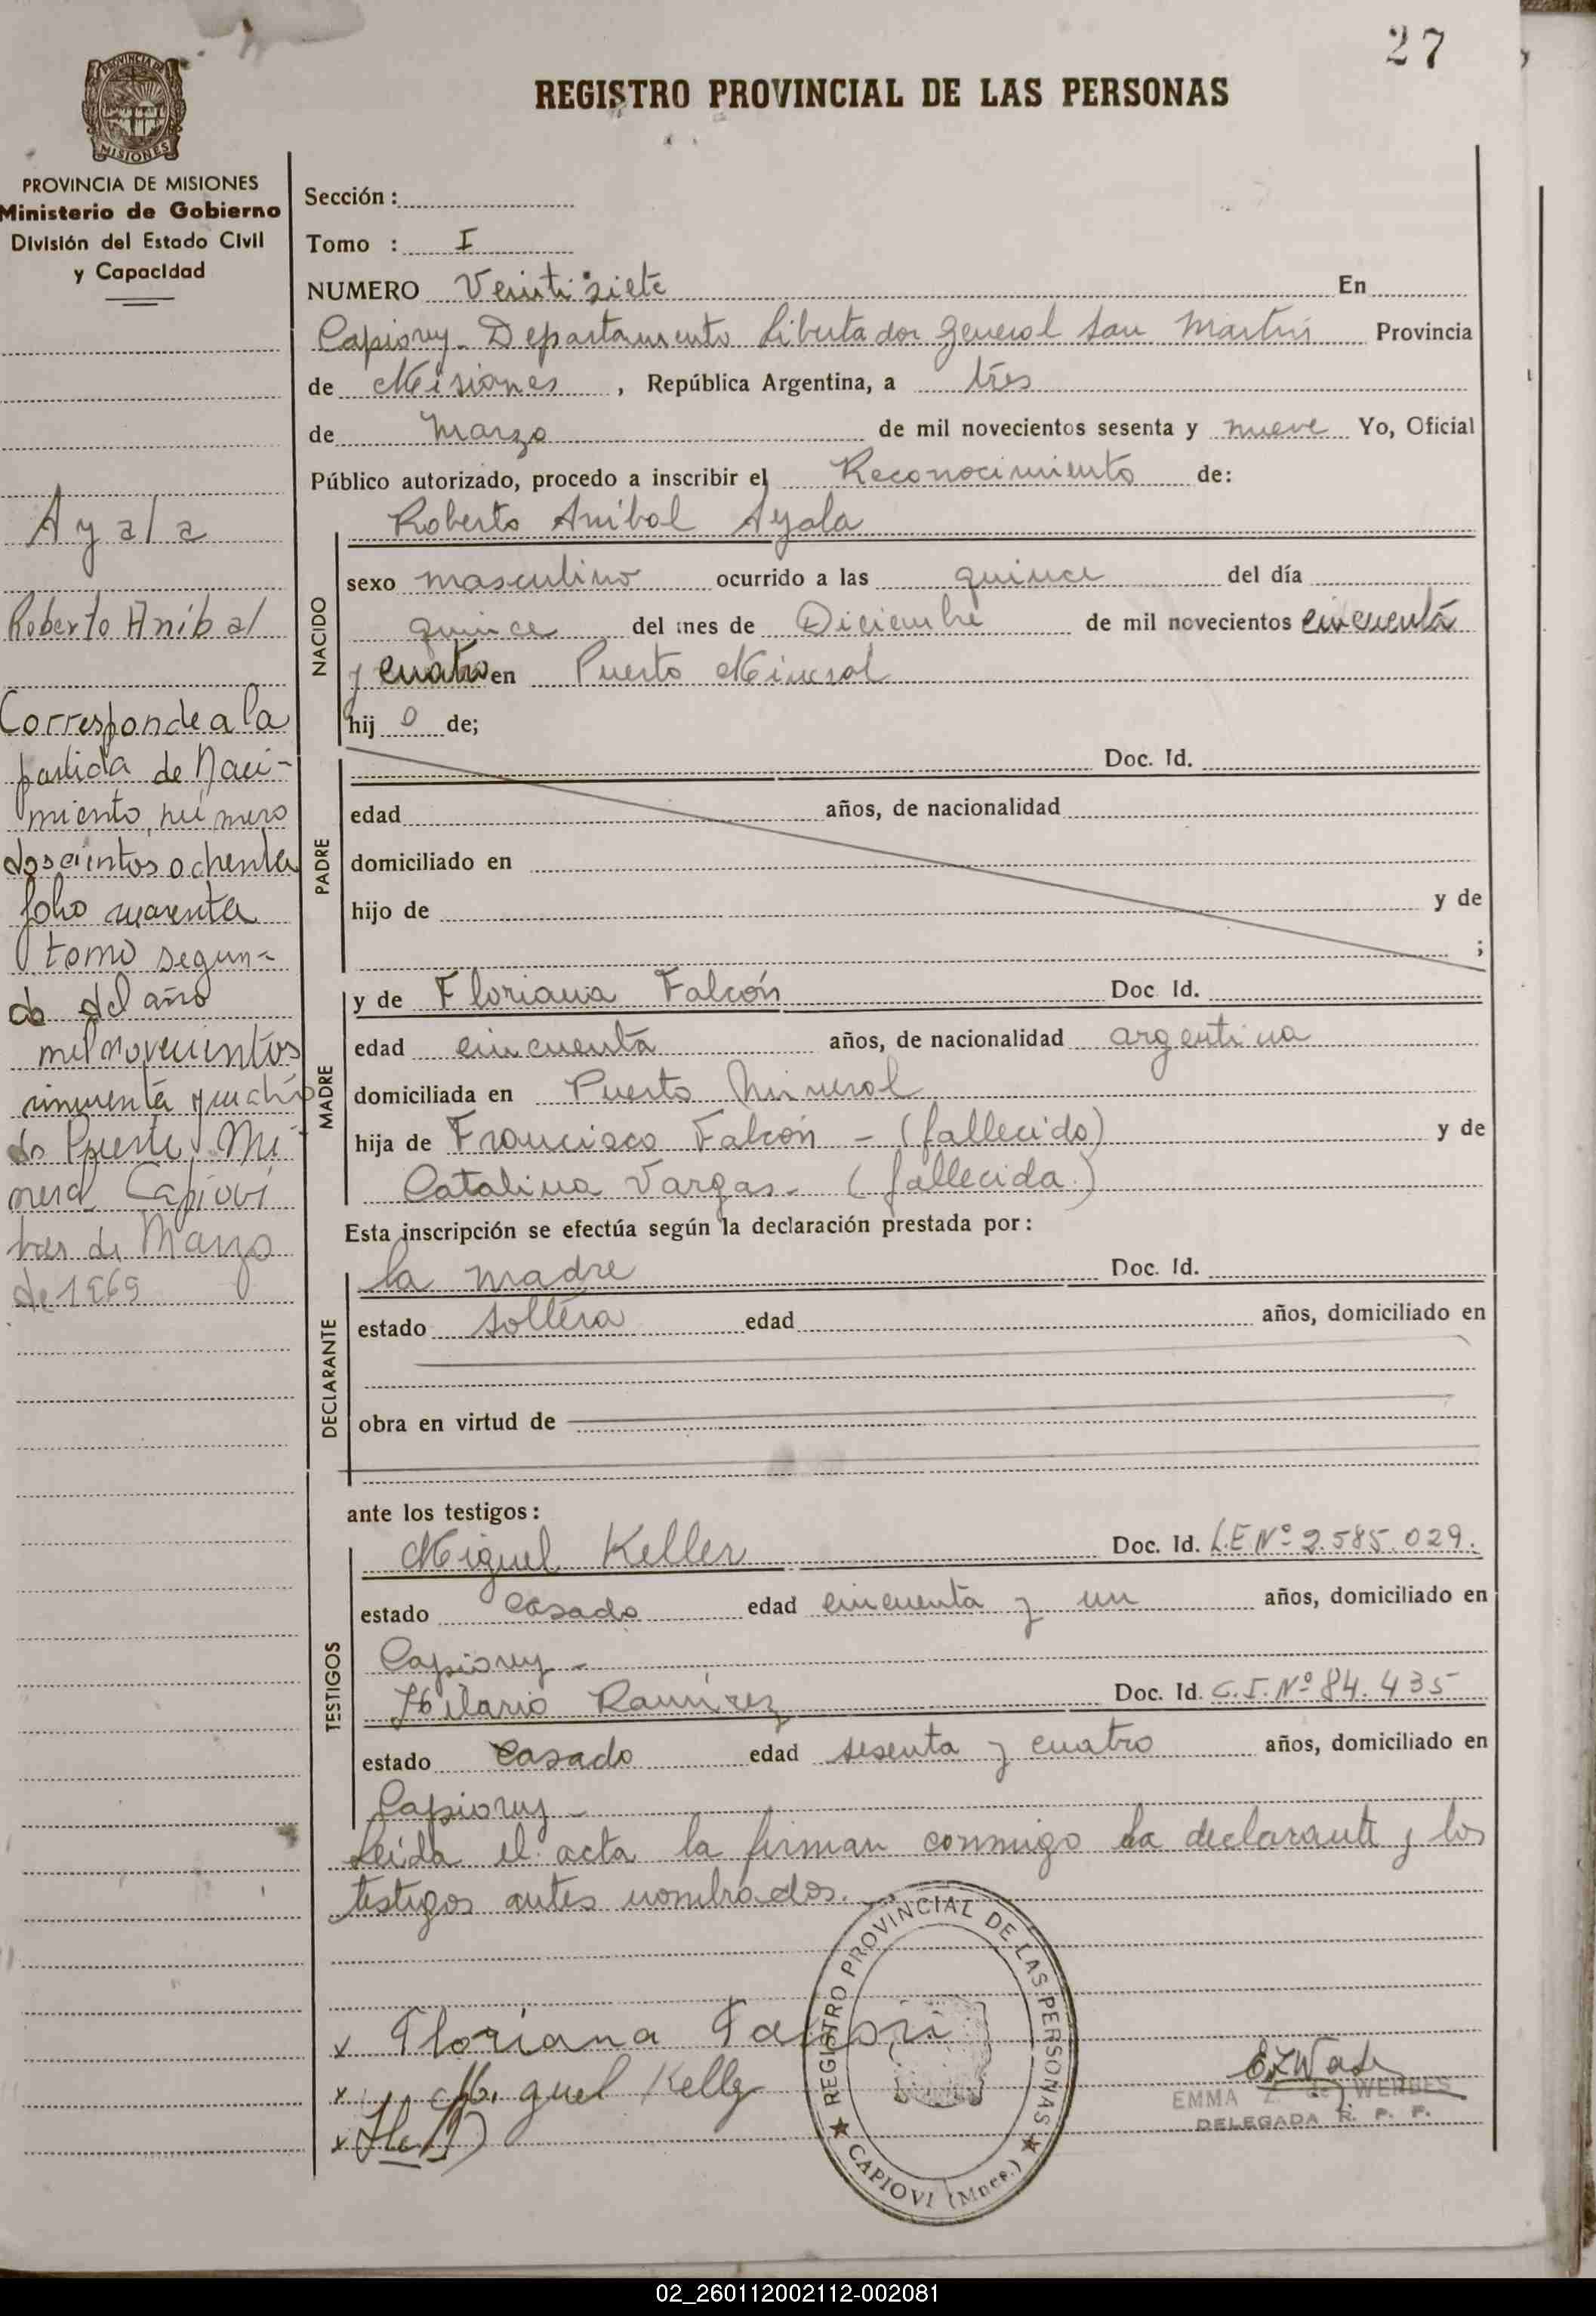 27
REGISTRO PROVINCIAL DE LAS PERSONAS
PROVINCIA DE
MISIONES
PROVINCIA DE MISIONES
Ministerio de Gobierno
División del Estado Civil
y Capacidad
Ayala
Roberto Anibal
Corresponde a la
partida de Naci-
miento, número
doscientos ochenta
folio cuarenta
tomo segun-
do del año
mil novecientos
cincuenta y cuatro
de Puerto Mi-
neral Capioví
tres de Marzo
de 1969
Sección :
Tomo : I
NUMERO Veintisiete En
Capiovy - Departamento Libertador General San Martín Provincia
de Misiones , República Argentina, a tres
de Marzo de mil novecientos sesenta y nueve Yo, Oficial
Público autorizado, procedo a inscribir el Reconocimiento de:
Roberto Anibal Ayala
NACIDO
sexo masculino ocurrido a las quince del día
quince del mes de Diciembre de mil novecientos cincuenta
y cuatro en Puerto Mineral
hij o de;
PADRE
Doc. Id.
edad años, de nacionalidad
domiciliado en
hijo de y de
;
MADRE
y de Floriana Falcón Doc. Id.
edad cincuenta años, de nacionalidad argentina
domiciliada en Puerto Mineral
hija de Francisco Falcón - (fallecido) y de
Catalina Vargas - (fallecida)
Esta inscripción se efectúa según la declaración prestada por :
DECLARANTE
la madre Doc. Id.
estado soltera edad años, domiciliado en
obra en virtud de
ante los testigos :
TESTIGOS
Miguel Keller Doc. Id. L.E Nº 2.585.029.
estado casado edad cincuenta y un años, domiciliado en
Capiovy -
Hilario Ramírez Doc. Id. C.I. Nº 84.435
estado casado edad sesenta y cuatro años, domiciliado en
Capiovy -
Leída el acta la firman conmigo la declarante y los
testigos antes nombrados.
x Floriana Falcon
x Miguel Keller
x
REGISTRO PROVINCIAL DE LAS PERSONAS
CAPIOVI (Mnes.)
EMMA Z. de WERLE
DELEGADA R. P. P.
02_260112002112-002081